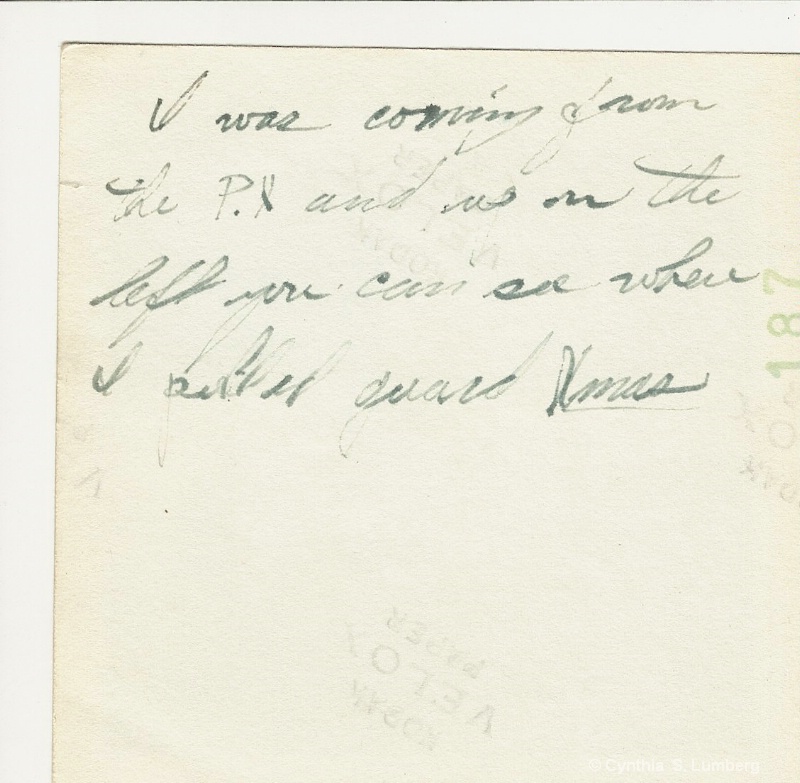 I was coming from
the P.X and us on the
left you can see where
I pulled guard Xmas
187
KODAK
VELOX
PAPER
KODAK
VELOX
PAPER
KODAK
© Cynthia S. Lumberg